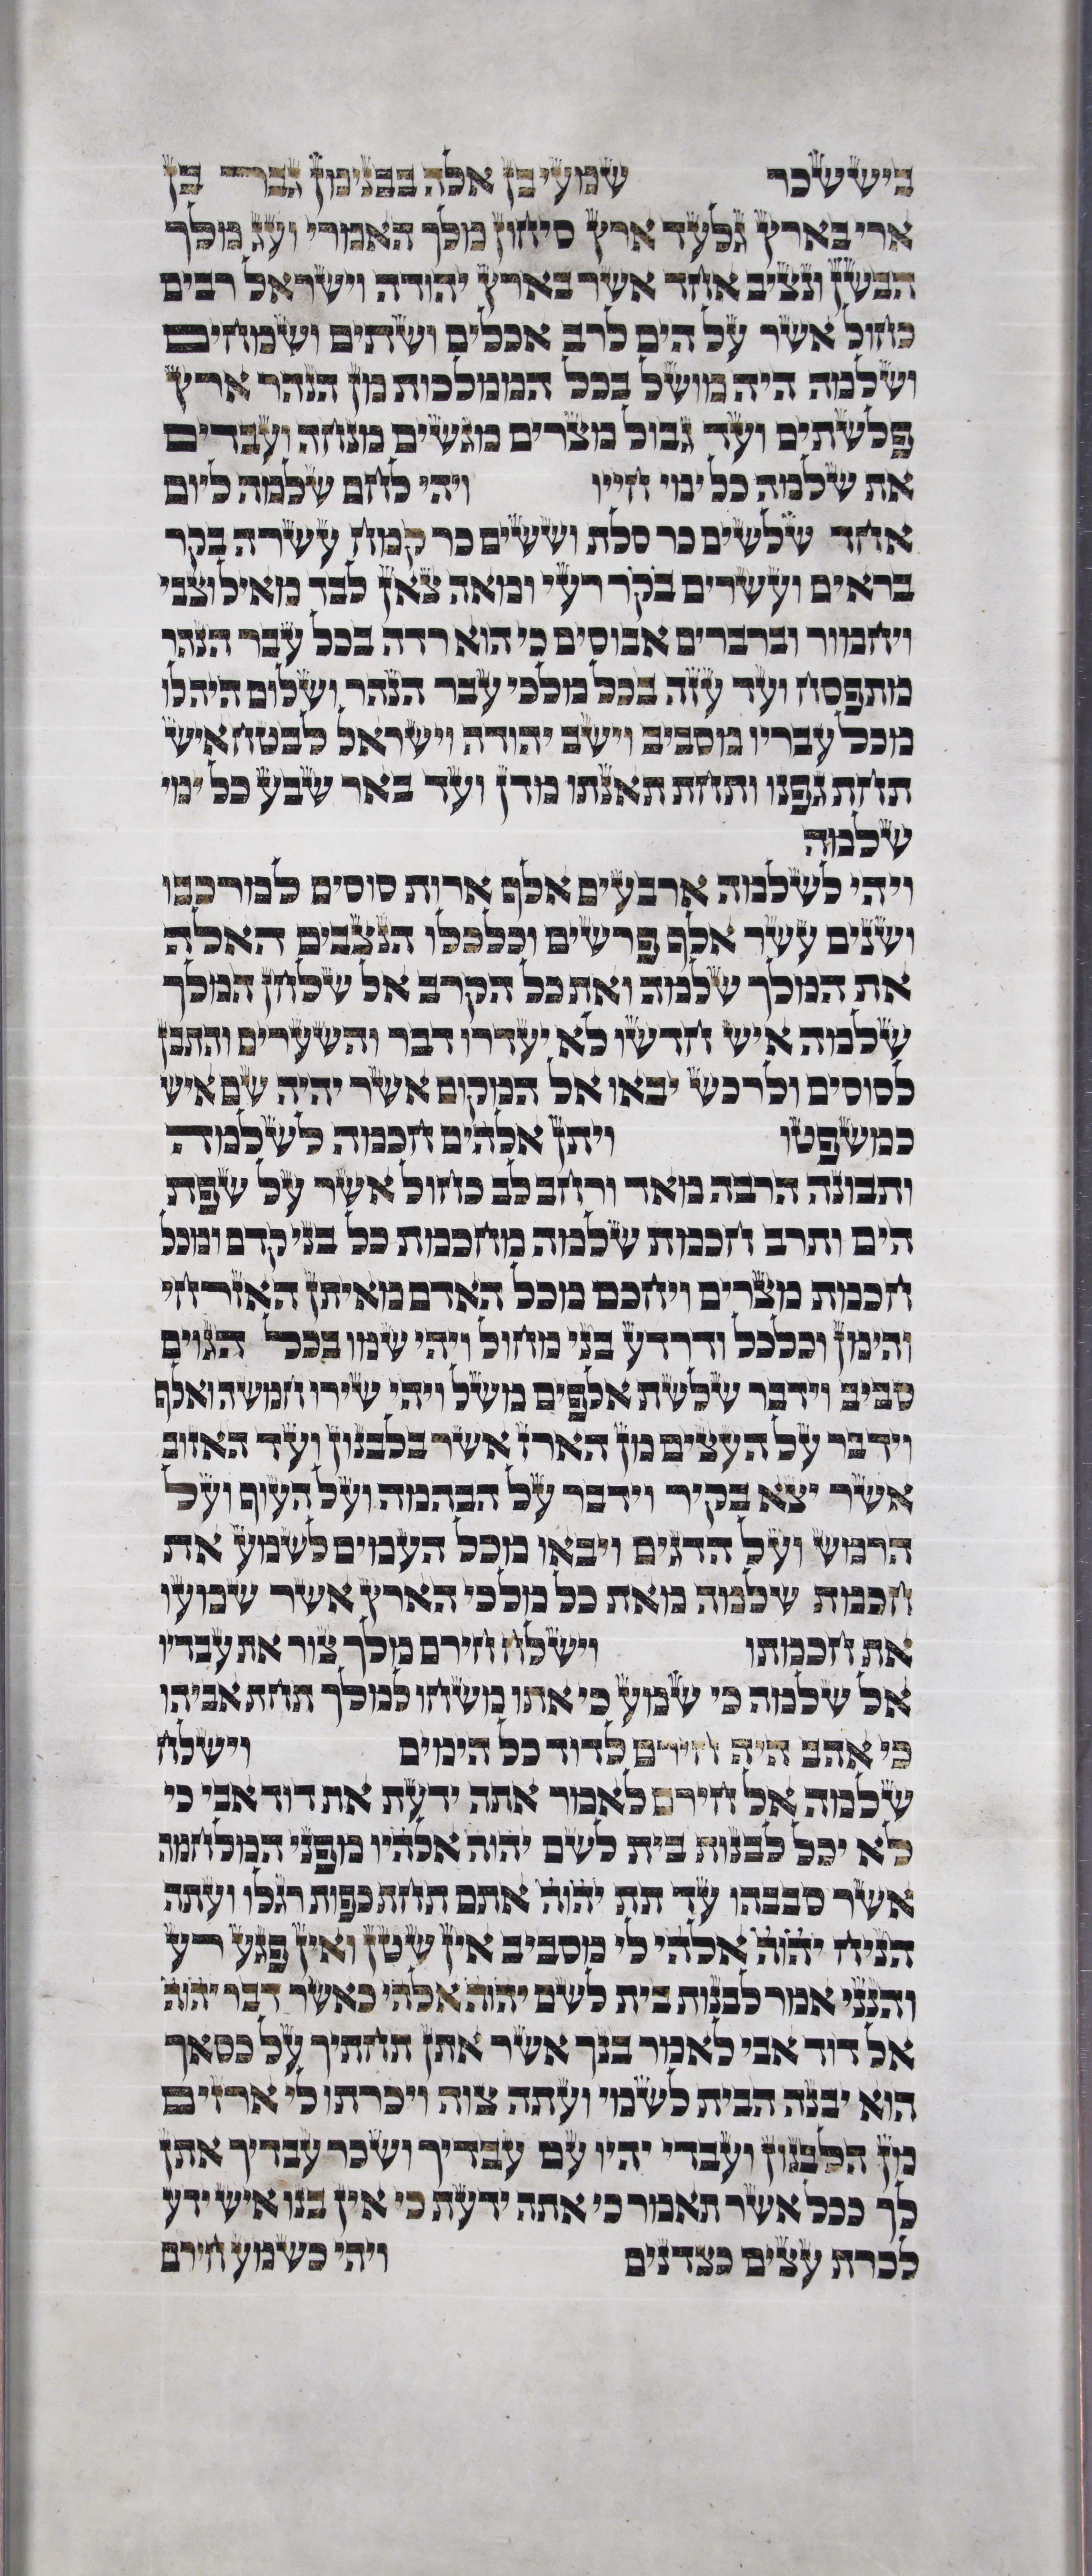 ביששכר שמעי בן אלה בבנימין גבר בן
ארי בארץ גלעד ארץ סיחון מלך האמרי ועג מלך
הבשן ונציב אחד אשר בארץ יהודה וישראל רבים
כחול אשר על הים לרב אכלים ושתים ושמחים
ושלמה היה מושל בכל הממלכות מן הנהר ארץ
פלשתים ועד גבול מצרים מגשים מנחה ועבדים
את שלמה כל ימי חייו ויהי לחם שלמה ליום
אחד שלשים כר סלת וששים כר קמח עשרה בקר
בראים ועשרים בקר רעי ומאה צאן לבד מאיל וצבי
ויחמור וברברים אבוסים כי הוא רדה בכל עבר הנהר
מתפסח ועד עזה בכל מלכי עבר הנהר ושלום היה לו
מכל עבריו מסביב וישב יהודה וישראל לבטח איש
תחת גפנו ותחת תאנתו מדן ועד באר שבע כל ימי
שלמה
ויהי לשלמה ארבעים אלף ארות סוסים למרכבו
ושנים עשר אלף פרשים וכלכלו הנצבים האלה
את המלך שלמה ואת כל הקרב אל שלחן המלך
שלמה איש חדשו לא יעדרו דבר והשערים והתבן
לסוסים ולרכש יבאו אל המקום אשר יהיה שם איש
כמשפטו ויתן אלהים חכמה לשלמה
ותבונה הרבה מאד ורחב לב כחול אשר על שפת
הים ותרב חכמת שלמה מחכמת כל בני קדם ומכל
חכמת מצרים ויחכם מכל האדם מאיתן האזרחי
והימן וכלכל ודרדע בני מחול ויהי שמו בכל הגוים
סביב וידבר שלשת אלפים משל ויהי שירו חמשה ואלף
וידבר על העצים מן הארז אשר בלבנון ועד האזוב
אשר יצא בקיר וידבר על הבהמה ועל העוף ועל
הרמש ועל הדגים ויבאו מכל העמים לשמע את
חכמת שלמה מאת כל מלכי הארץ אשר שמעו
את חכמתו וישלח חירם מלך צור את עבדיו
אל שלמה כי שמע כי אתו משחו למלך תחת אביהו
כי אהב היה חירם לדוד כל הימים וישלח
שלמה אל חירם לאמר אתה ידעת את דוד אבי כי
לא יכל לבנות בית לשם יהוה אלהיו מפני המלחמה
אשר סבבהו עד תת יהוה אתם תחת כפות רגלו ועתה
הניח יהוה אלהי לי מסביב אין שטן ואין פגע רע
והנני אמר לבנות בית לשם יהוה אלהי כאשר דבר יהוה
אל דוד אבי לאמר בנך אשר אתן תחתיך על כסאך
הוא יבנה הבית לשמי ועתה צוה ויכרתו לי ארזים
מן הלבנון ועבדי יהיו עם עבדיך ושכר עבדיך אתן
לך ככל אשר תאמר כי אתה ידעת כי אין בנו איש ידע
לכרת עצים כצדנים ויהי כשמע חירם